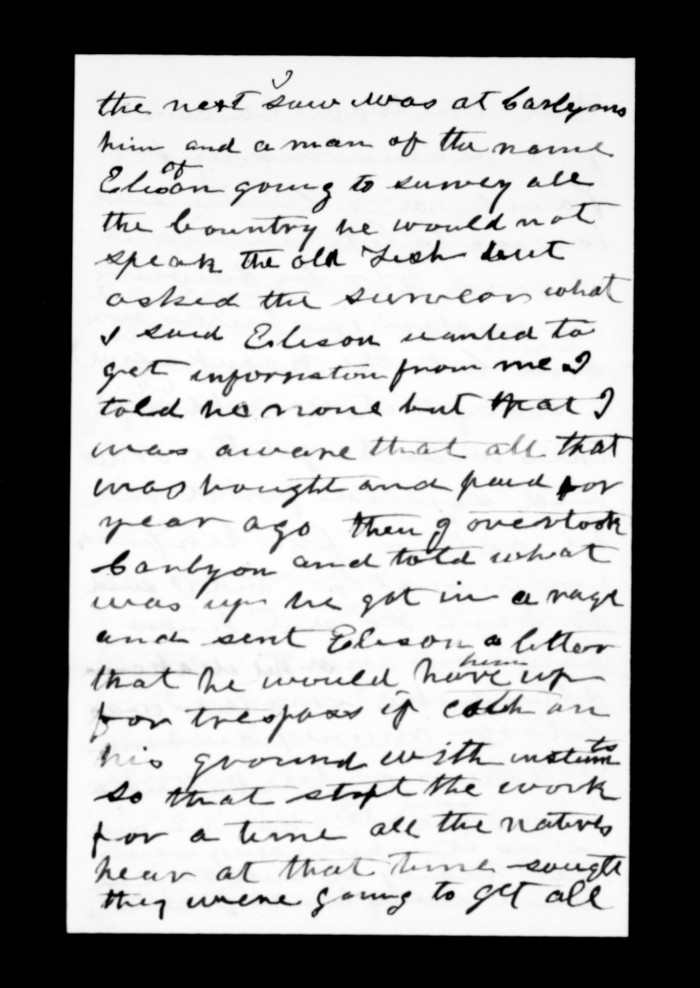 the next I saw was at Carlyons
him and a man of the name
of Elison going to survey all
the Country he would not
speak the old Tish but
asked the surveor what
I said Elison wanted to
get informston from me I
told he none but that I
was aware that all that
was bought and paid for
year ago then I overtook
Carlyon and told what
was up he got in a rage
and sent Elison a letter
that he would have him up
for trespass if catch an
his ground with instumts
so that stopt the work
for a time all the natives
hear at that time sought
they were going to get all